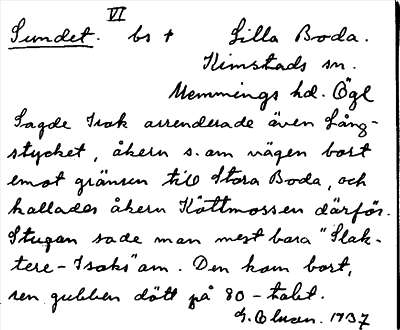 VI
Sundet. bs + Lilla Boda.
Kimstads sn.
Memmings hd. Ögl
Sagde Isak arrenderade även Lång-
stycket, åkern s.om vägen bort
emot gränsen till Stora Boda, och
kallades åkern Köttmossen därför.
Stugan sade man mest bara "Slak-
tere-Isaks"am. Den kom bort,
sen gubben dött på 80-talet.
1937